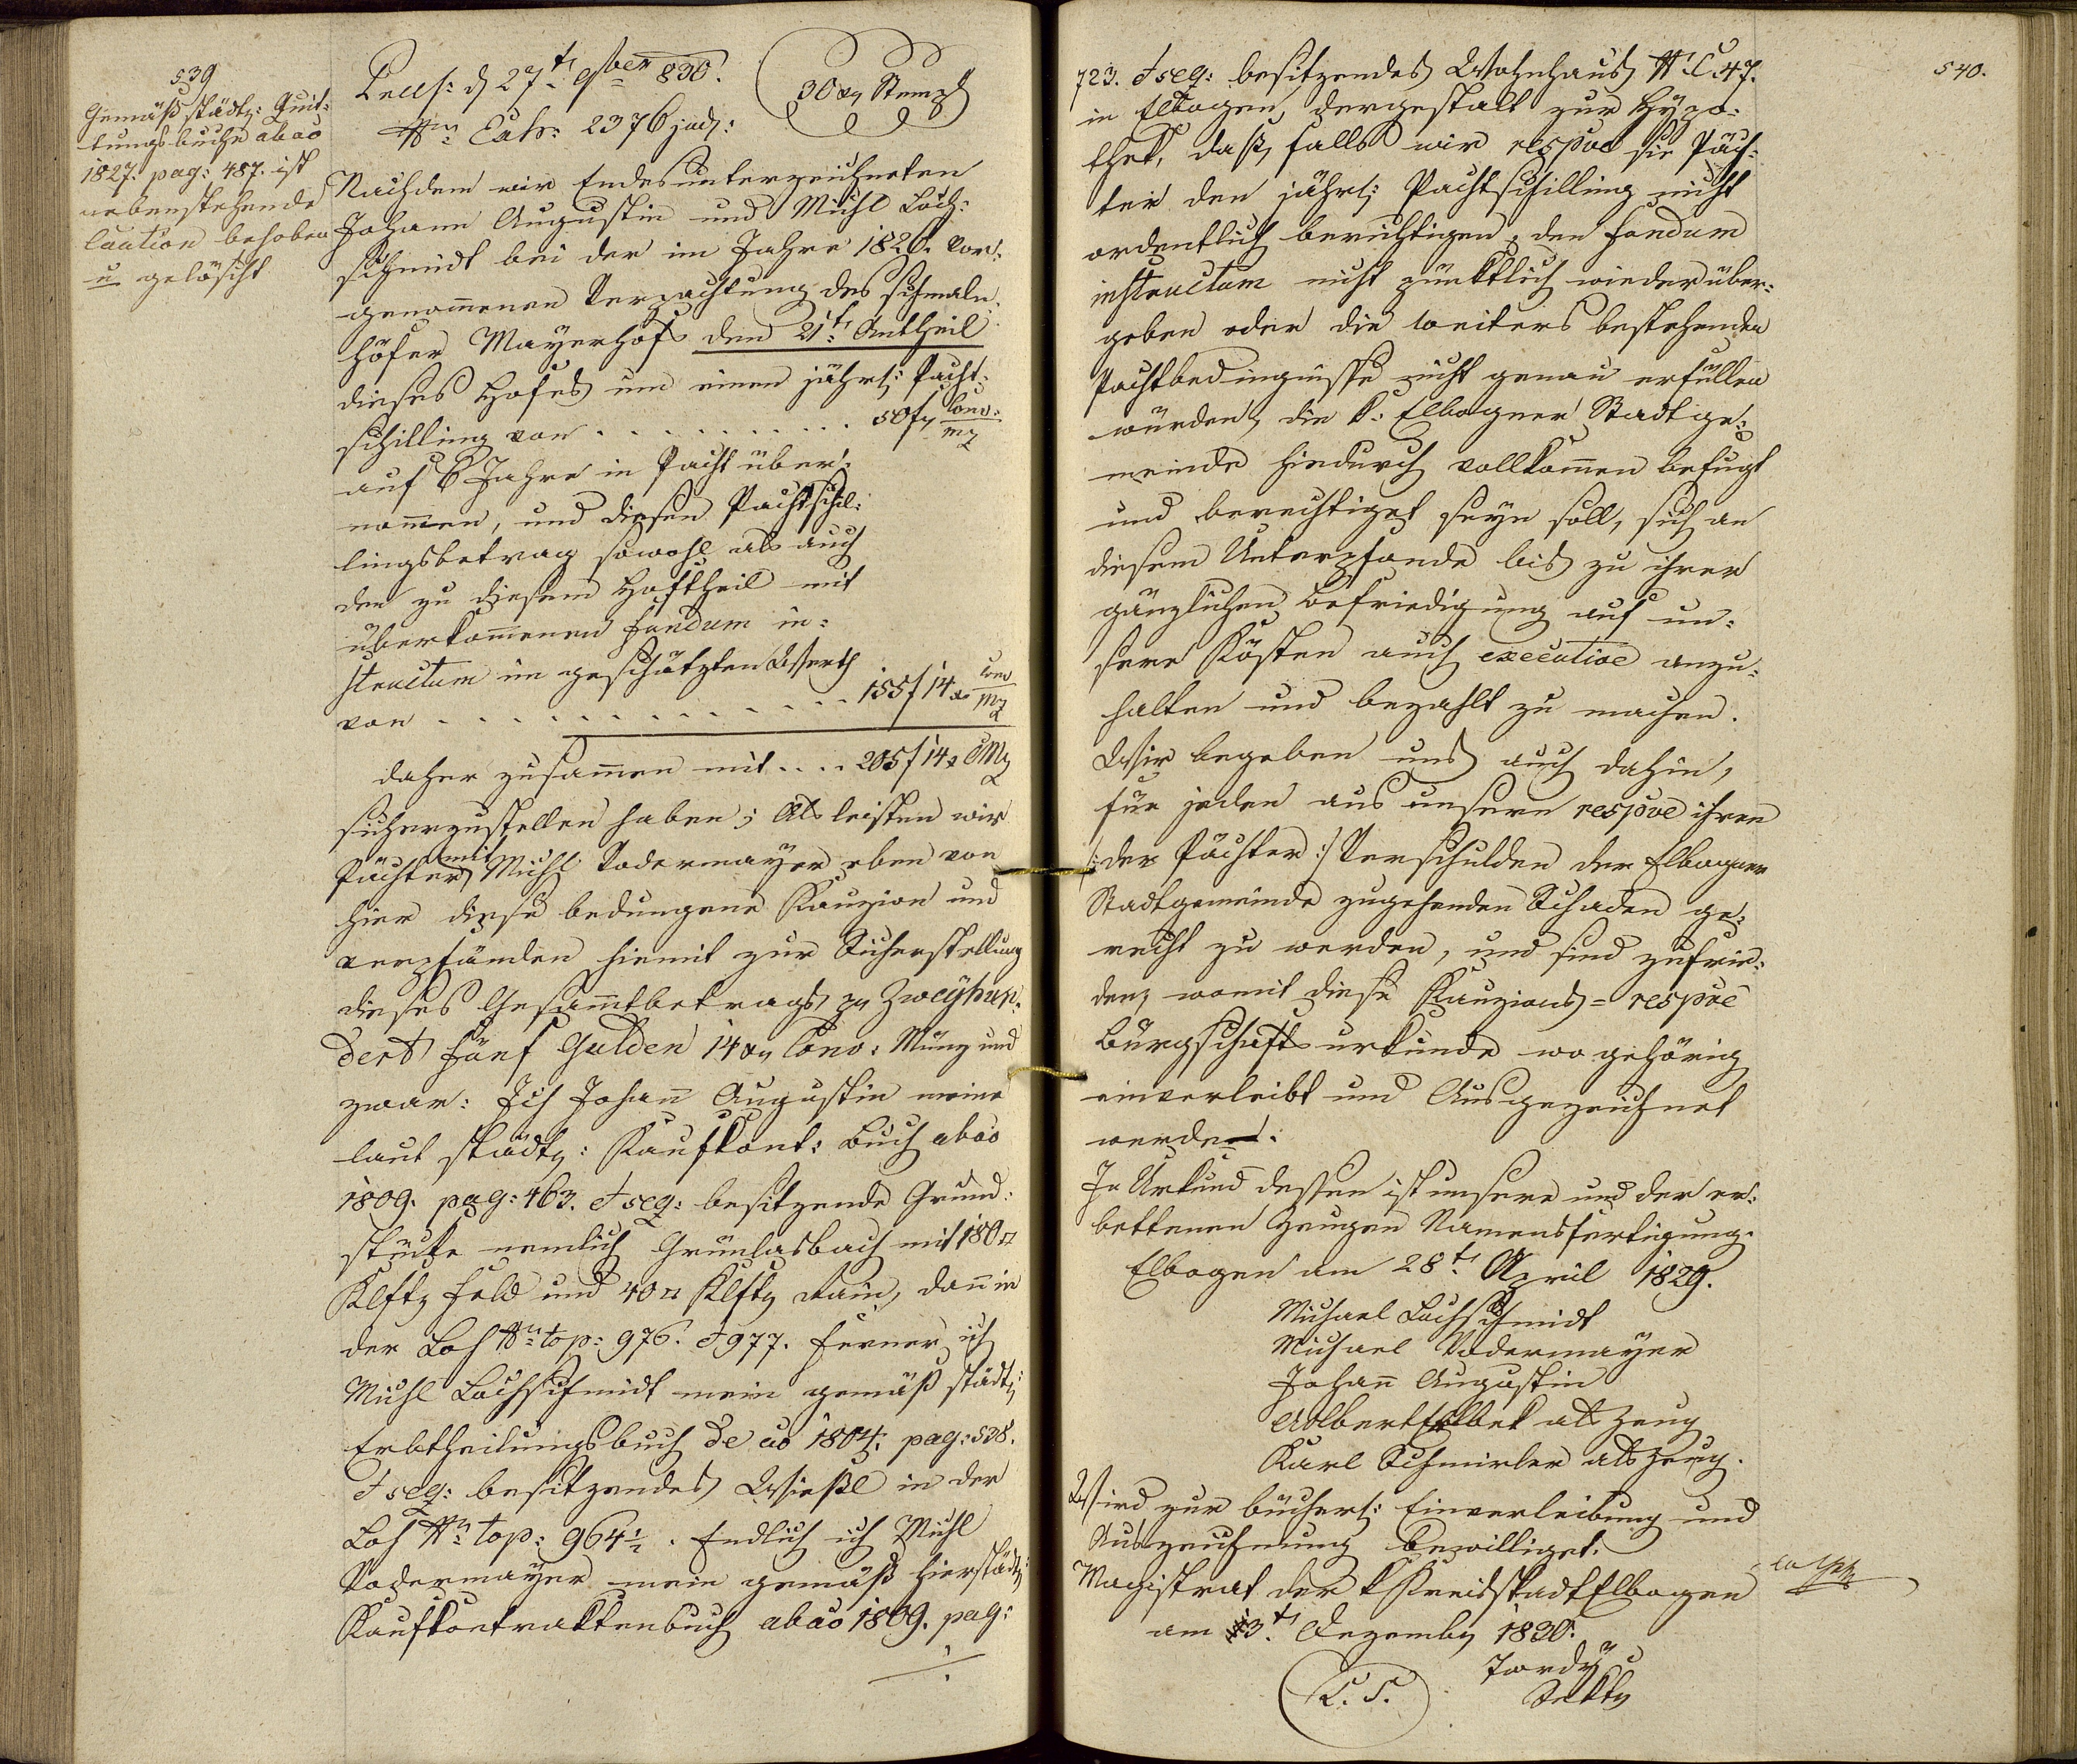 539
Gemäß städt: Quit-
tungsbuche ab ao
1827. pag: 487. ist
nebenstehende
Caution behoben
u gelöscht
Präs: d 27t 9ber 830.
30 xr Stempl
Nro Exh: 2376 jud:
Nachdem wir Endesunterzeichneten
Johann Augustin und Michl Loch-
schmidt bei der im Jahre 1826. vor-
genommenen Verpachtung des schmaln-
höfer Mayerhofs den 21t Antheil
dieses Hofes um einen jährl: Pacht-
schilling von . . . . . . . . . . 50 fr Conv: Mz
auf 6 Jahre in Pacht über-
nommen, und diesen Pachtschil-
lingsbetrag sowohl als auch
den zu diesem Hoftheil mit
überkommenen fundum in-
structum im geschätzten Werth
von . . . . . . . . . . . . . 155 f 14 x Conv Mz
daher zusammen mit . . . . 205 f 14 x CMz
sicherzustellen haben; Als leisten wir
Pächter mit Michl Vodermayer eben von
hier diese bedungene Kauzion und
verpfänden hiemit zur Sicherstellung
dieses Gesammtbetrags pr Zweyhun-
dert fünf Gulden 14 xr Conv: Münz und
zwar: Ich Johann Augustin meine
laut städt: Kaufkont: Buch ab ao
1809. pag: 463. & seq: besitzende Grund-
stücke nemlich Grünlasbach mit 180 □
Klftr Feld und 40 □ Klftr Rain, dann in
der Loh Nro top: 976. & 977. ferner ich
Michl Lochschmidt mein gemäß städt:
Erbtheilungsbuch de ao 1804. pag: 538.
& seq: besitzendes Wießl in der
Loh Nro top: 964½. Endlich ich Michl
Vodermayer mein gemäß hierstädt:
Kaufkontraktenbuch ab ao 1809. pag:
./.
540.
723. & seq: besitzendes Wohnhaus N C 47.
in Elbogen dergestalt zur Hypo-
thek, daß, falls wir respve die Päch-
ter den jährl: Pachtschilling nicht
ordentlich berichtigen, den fundum
instructum nicht pünktlich wieder über-
geben oder die weiters bestehenden
Pachtbedingnisse nicht genau erfüllen
würden, die k: Elbogner Stadtge-
meinde hiedurch vollkommen befugt
und berechtiget seyn soll, sich an
diesem Unterpfande bis zu ihrer
gänzlichen Befriedigung auf un-
sere Kösten auch executive anzu-
halten und bezahlt zu machen.
Wir begeben uns auch dahin,
für jeden aus unsern respve ihren
/: der Pächter :/ Verschulden der Elbogner
Stadtgemeinde zugehenden Schaden ge-
recht zu werden, und sind zufrie-
den, womit diese Kauzions- respve
Bürgschaftsurkunde wo gehörig
einverleibt und Ausgezeichnet
werde.
In Urkund dessen ist unsere und der er-
bettenen Zeugen Namensfertigung.
Elbogen am 28t April 1829.
Michael Lochschmidt
Michael Vodermayer
Johann Augustin
als Zeug
Karl Schmirler als Zeug.
Wird zur bücherl: Einverleibung und
Auszeichnung bewilliget.
Magistrat der k Kreisstadt Elbogen
am 3t Dezember 1830.
L. S.